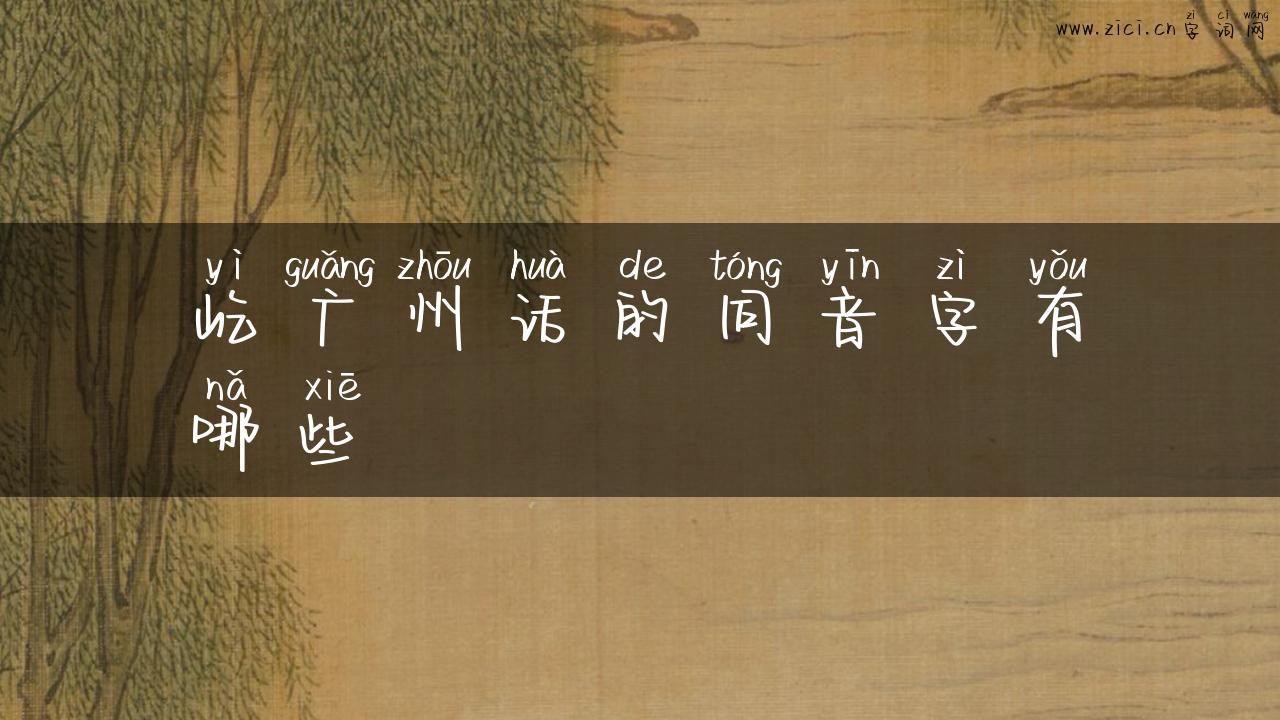 zì cí wǎng
www.zici.cn 字词网
yì guǎng zhōu huà de tóng yīn zì yǒu
屹广州话的同音字有
nǎ xiē
哪些